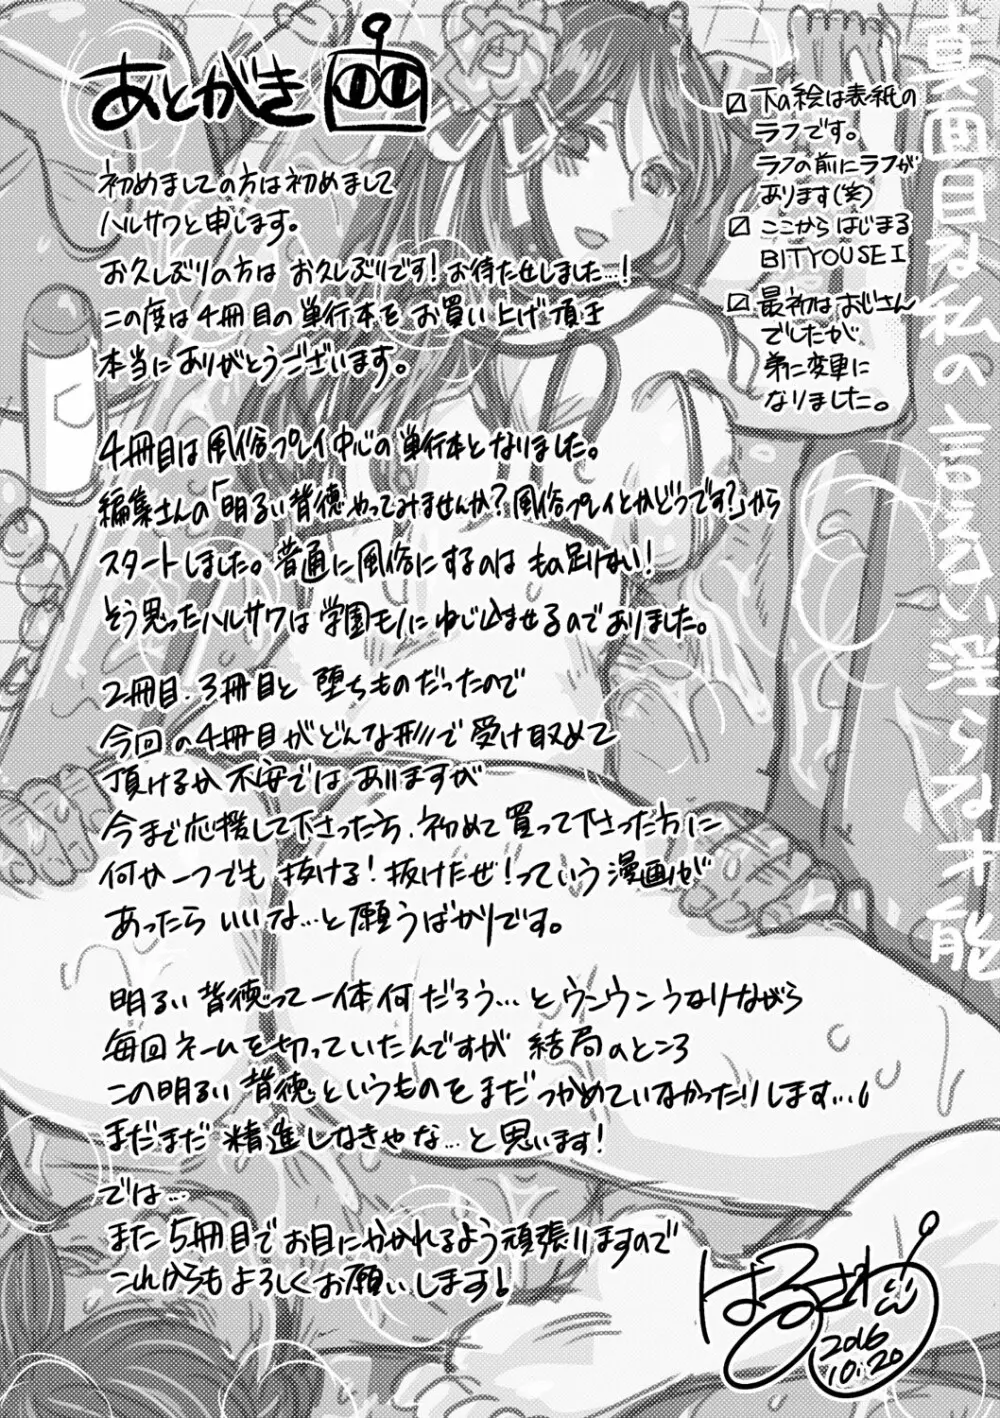 あとがき
初めましての方は初めまして
ハルサワと申します。
お久しぶりの方は お久しぶりです! お待たせしました…!
この度は4冊目の単行本を お買い上げ頂き
本当にありがとうございます。
4冊目は風俗プレイ中心の単行本となりました。
編集さんの「明るい背徳やってみませんか?風俗プレイとかどうです?」から
スタートしました。普通に風俗にするのは もの足りない!
そう思ったハルサワは学園モノにねじ込ませるのでありました。
2冊目、3冊目と 堕ちものだったので
今回の4冊目がどんな形で受け取めて
頂けるか不安ではありますが
今まで応援して下さった方、初めて買って下さった方に
何か一つでも 抜ける!抜けたぜ!っていう漫画が
あったらいいな…と願うばかりです。
明るい背徳って一体何だろう…とウンウンうなりながら
毎回ネームを切っていたんですが 結局のところ
この明るい背徳というものをまだつかめていなかったりします…
まだまだ 精進しなきゃな…と思います!
では…
また5冊目でお目にかかれるよう頑張りますので
これからもよろしくお願いします!
☑ 下の絵は表紙の
ラフです。
ラフの前にラフが
あります(笑)
☑ ここからはじまる
BITYOUSEI
☑ 最初はおじさん
でしたが
弟に変更に
なりました。
真面目な私の言えない淫らな才能
はるさわ
2016
10.20